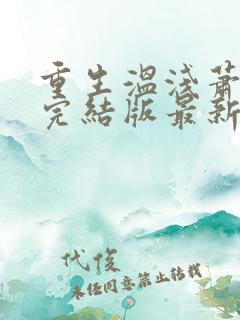 重生溫淺蕭
完結版最新
代俊
未经同意禁止转载